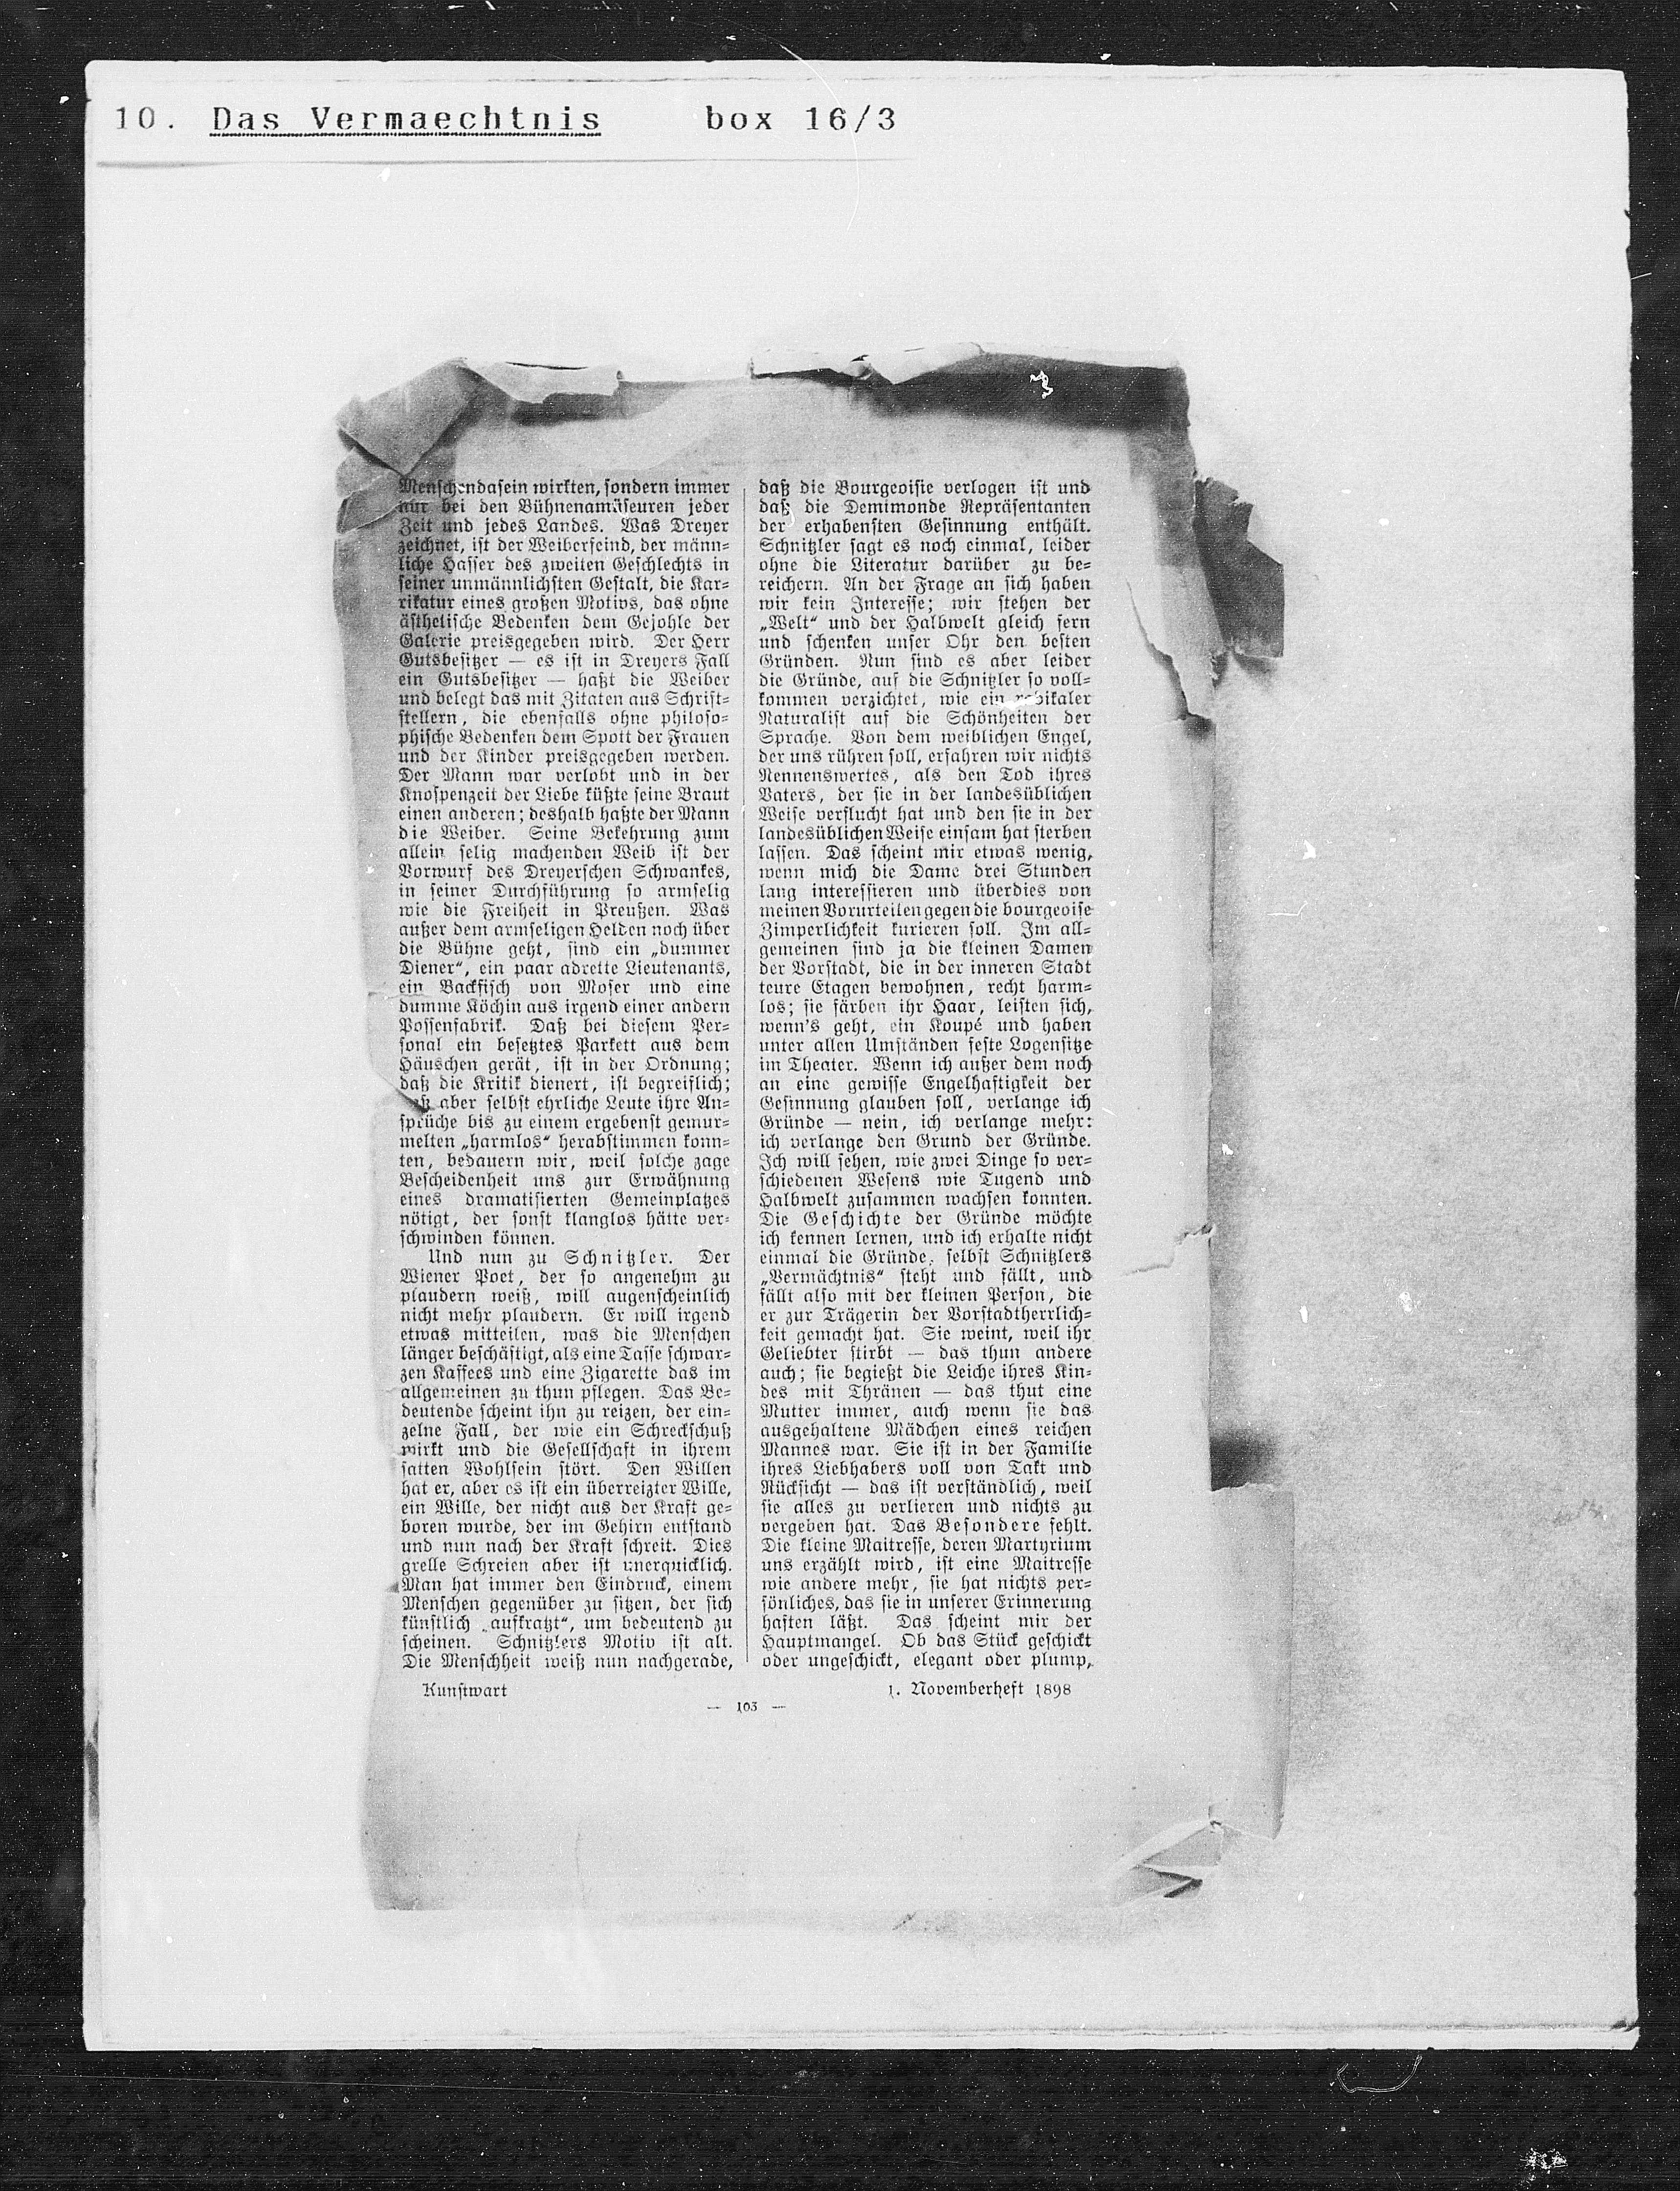 10. Das Vermaechtnis box 16/3
Menschendasein wirkten, sondern immer
nur bei den Bühnenamüseuren jeder
Zeit und jedes Landes. Was Dreyer
zeichnet, ist der Weiberfeind, der männ-
liche Hasser des zweiten Geschlechts in
seiner unmännlichsten Gestalt, die Kar-
rikatur eines großen Motivs, das ohne
ästhetische Bedenken dem Gejohle der
Galerie preisgegeben wird. Der Herr
Gutsbesitzer — es ist in Dreyers Fall
ein Gutsbesitzer — haßt die Weiber
und belegt das mit Zitaten aus Schrift-
stellern, die ebenfalls ohne philoso-
phische Bedenken dem Spott der Frauen
und der Kinder preisgegeben werden.
Der Mann war verlobt und in der
Knospenzeit der Liebe küßte seine Braut
einen anderen; deshalb haßte der Mann
die Weiber. Seine Bekehrung zum
allein selig machenden Weib ist der
Vorwurf des Dreyerschen Schwankes,
in seiner Durchführung so armselig
wie die Freiheit in Preußen. Was
außer dem armseligen Helden noch über
die Bühne geht, sind ein „dummer
Diener“, ein paar adrette Lieutenants,
ein Backfisch von Moser und eine
dumme Köchin aus irgend einer andern
Possenfabrik. Daß bei diesem Per-
sonal ein besetztes Parkett aus dem
Häuschen gerät, ist in der Ordnung;
daß die Kritik dienert, ist begreiflich;
daß aber selbst ehrliche Leute ihre An-
sprüche bis zu einem ergebenst gemur-
melten „harmlos“ herabstimmen konn-
ten, bedauern wir, weil solche zage
Bescheidenheit uns zur Erwähnung
eines dramatisierten Gemeinplatzes
nötigt, der sonst klanglos hätte ver-
schwinden können.
Und nun zu Schnitzler. Der
Wiener Poet, der so angenehm zu
plaudern weiß, will augenscheinlich
nicht mehr plaudern. Er will irgend
etwas mitteilen, was die Menschen
länger beschäftigt, als eine Tasse schwar-
zen Kaffees und eine Zigarette das im
allgemeinen zu thun pflegen. Das Be-
deutende scheint ihn zu reizen, der ein-
zelne Fall, der wie ein Schreckschuß
wirkt und die Gesellschaft in ihrem
satten Wohlsein stört. Den Willen
hat er, aber es ist ein überreizter Wille,
ein Wille, der nicht aus der Kraft ge-
boren wurde, der im Gehirn entstand
und nun nach der Kraft schreit. Dies
grelle Schreien aber ist unerquicklich.
Man hat immer den Eindruck, einem
Menschen gegenüber zu sitzen, der sich
künstlich „aufkratzt“, um bedeutend zu
scheinen. Schnitzlers Motiv ist alt.
Die Menschheit weiß nun nachgerade,
daß die Bourgeoisie verlogen ist und
daß die Demimonde Repräsentanten
der erhabensten Gesinnung enthält.
Schnitzler sagt es noch einmal, leider
ohne die Literatur darüber zu be-
reichern. An der Frage an sich haben
wir kein Interesse; wir stehen der
„Welt“ und der Halbwelt gleich fern
und schenken unser Ohr den besten
Gründen. Nun sind es aber leider
die Gründe, auf die Schnitzler so voll-
kommen verzichtet, wie ein radikaler
Naturalist auf die Schönheiten der
Sprache. Von dem weiblichen Engel,
der uns rühren soll, erfahren wir nichts
Nennenswertes, als den Tod ihres
Vaters, der sie in der landesüblichen
Weise verflucht hat und den sie in der
landesüblichen Weise einsam hat sterben
lassen. Das scheint mir etwas wenig,
wenn mich die Dame drei Stunden
lang interessieren und überdies von
meinen Vorurteilen gegen die bourgeoise
Zimperlichkeit kurieren soll. Im all-
gemeinen sind ja die kleinen Damen
der Vorstadt, die in der inneren Stadt
teure Etagen bewohnen, recht harm-
los; sie färben ihr Haar, leisten sich,
wenn's geht, ein Koupé und haben
unter allen Umständen feste Logensitze
im Theater. Wenn ich außer dem noch
an eine gewisse Engelhaftigkeit der
Gesinnung glauben soll, verlange ich
Gründe — nein, ich verlange mehr:
ich verlange den Grund der Gründe.
Ich will sehen, wie zwei Dinge so ver-
schiedenen Wesens wie Tugend und
Halbwelt zusammen wachsen konnten.
Die Geschichte der Gründe möchte
ich kennen lernen, und ich erhalte nicht
einmal die Gründe. selbst Schnitzlers
„Vermächtnis“ steht und fällt, und
fällt also mit der kleinen Person, die
er zur Trägerin der Vorstadtherrlich-
keit gemacht hat. Sie weint, weil ihr
Geliebter stirbt — das thun andere
auch; sie begießt die Leiche ihres Kin-
des mit Thränen — das thut eine
Mutter immer, auch wenn sie das
ausgehaltene Mädchen eines reichen
Mannes war. Sie ist in der Familie
ihres Liebhabers voll von Takt und
Rücksicht — das ist verständlich, weil
sie alles zu verlieren und nichts zu
vergeben hat. Das Besondere fehlt.
Die kleine Maitresse, deren Martyrium
uns erzählt wird, ist eine Maitresse
wie andere mehr, sie hat nichts per-
sönliches, das sie in unserer Erinnerung
haften läßt. Das scheint mir der
Hauptmangel. Ob das Stück geschickt
oder ungeschickt, elegant oder plump,
Kunstwart 1. Novemberheft 1898
— 103 —